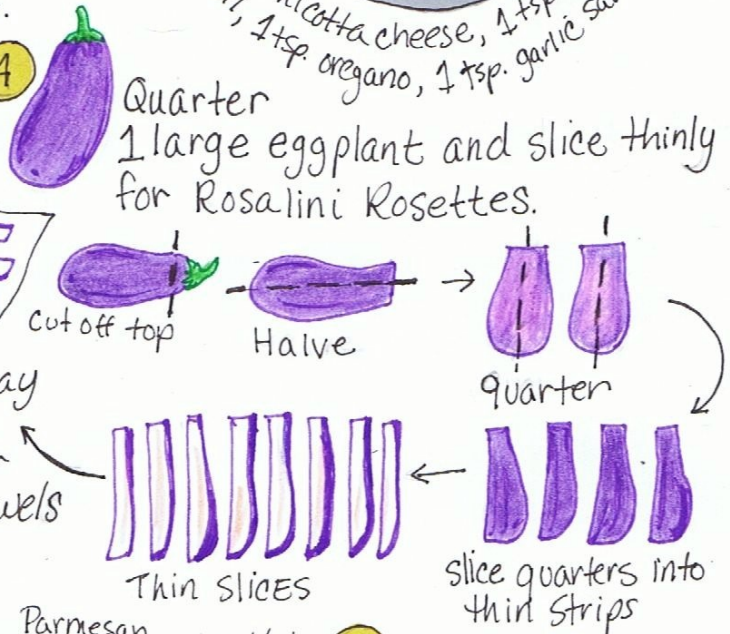 ricotta cheese, 1 tsp
, 1 tsp. oregano, 1 tsp. garlic
4
Quarter
1 large eggplant and slice thinly
for Rosalini Rosettes.
cut off top
Halve
quarter
ay
wels
Thin SLICES
slice quarters into
thin strips
Parmesan